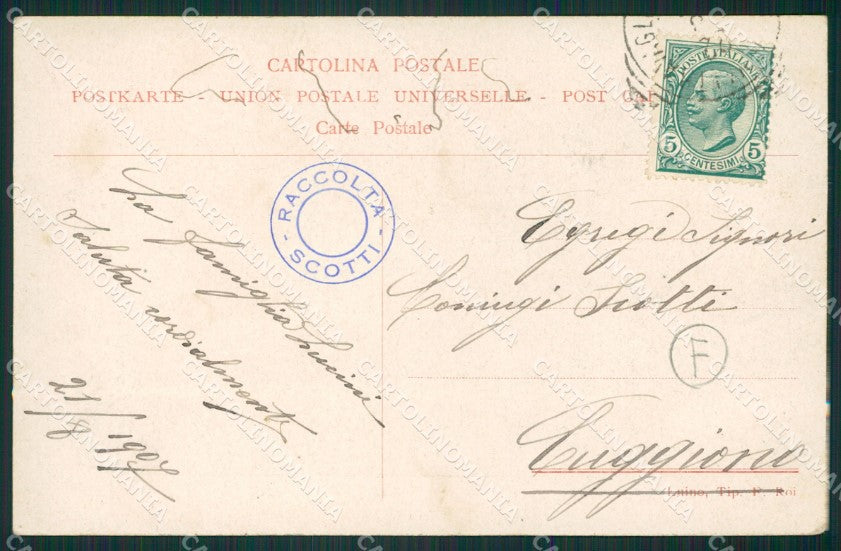 CARTOLINA POSTALE
POSTKARTE - UNION POSTALE UNIVERSELLE - POST CA
Carte Postale
POSTE ITALIANE
5 CENTESIMI 5
RACCOLTA
- SCOTTI -
La famiglia Lucini
saluta cordialmente
21/8 1907
Egregi Signori
Coniugi Scotti
F
Cuggiono
Luino, Tip. F. Roi
CARTOLINOMANIA